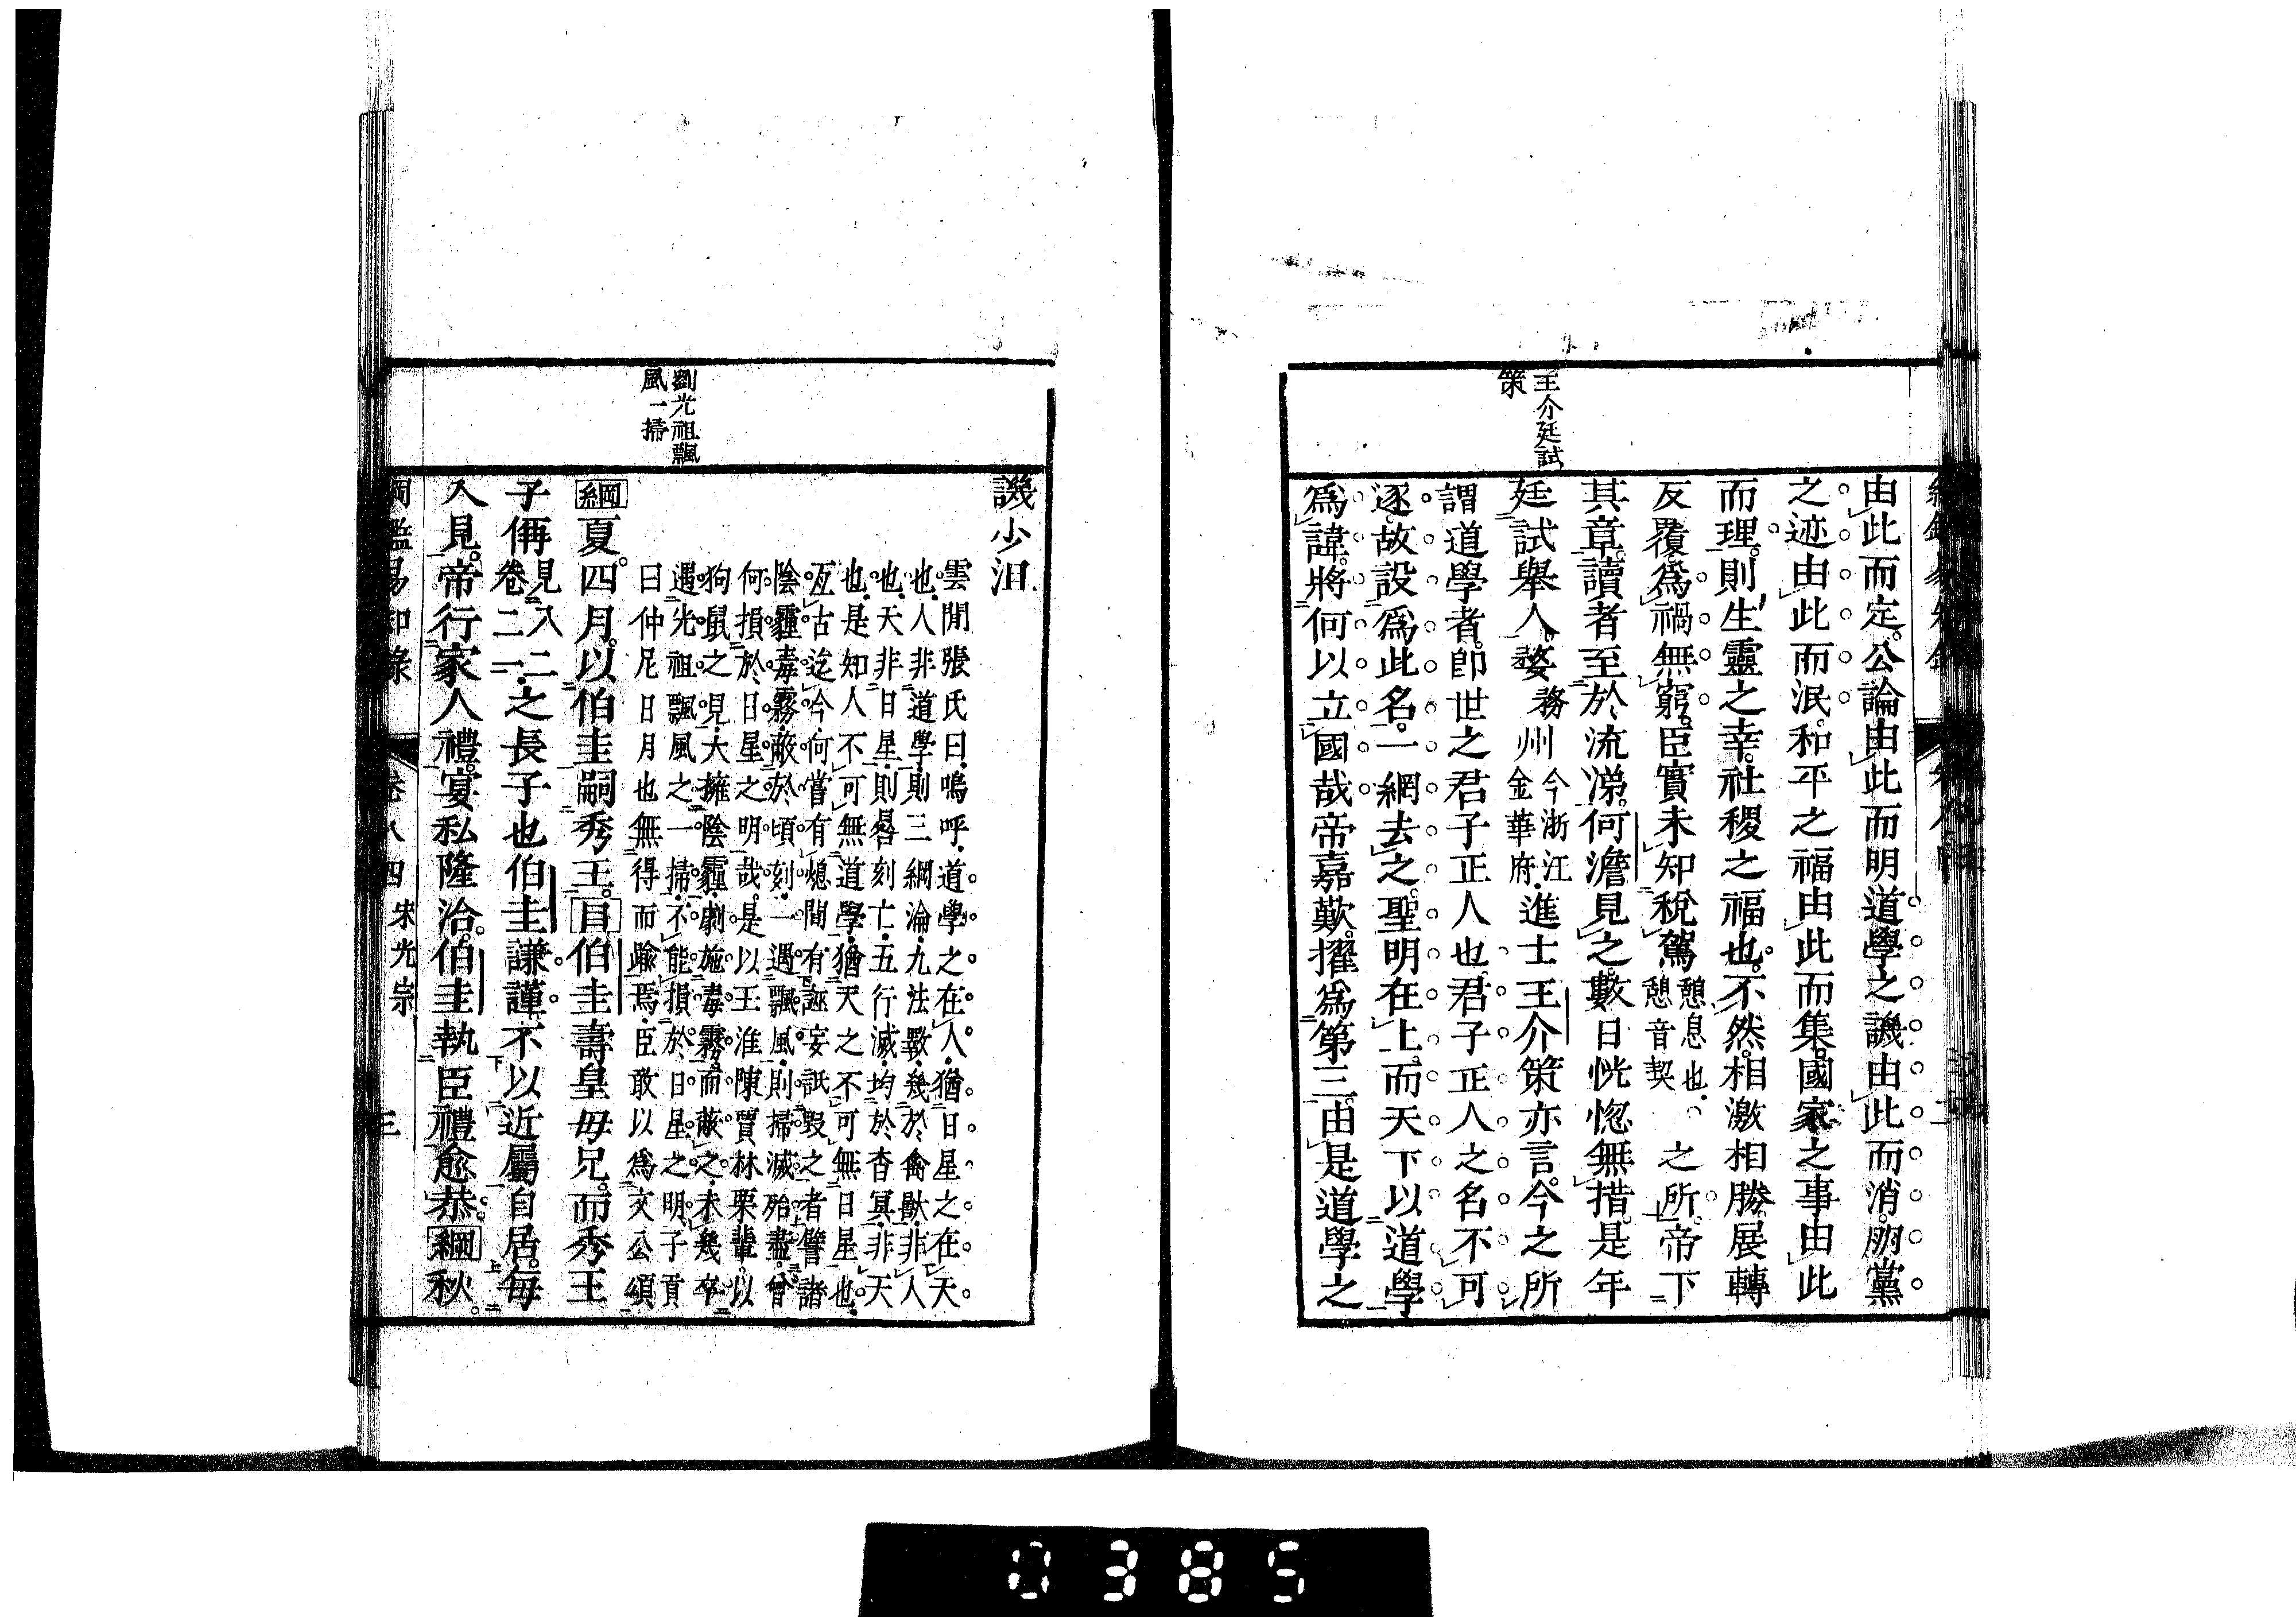 王介廷試
策
由此而定公論由此而明道學之譏由此而消朋黨
之迹由此而泯和平之福由此而集國家之事由此
而理則生靈之幸社稷之福也不然相激相勝展轉
反覆爲禍無窮臣實未知稅駕憩息也憩音契之所帝下
其章讀者至於流涕何澹見之數日恍惚無措是年
廷試舉人婺務州今浙江金華府進士王介策亦言今之所
謂道學者卽世之君子正人也君子正人之名不可
逐故設爲此名一網去之聖明在上而天下以道學
爲諱將何以立國哉帝嘉歎擢爲第三由是道學之
劉光祖飄
風一掃
譏少沮
雲閒張氏曰嗚呼道學之在人猶日星之在天
也人非道學則三綱淪九法斁幾於禽獸非人
也天非日星則晷刻亡五行滅均於杳冥非天
也是知人不可無道學猶天之不可無日星也
亙古迄今何嘗有熄間有誣妄詆毀之者譬諸
陰霾毒霧蔽於頃刻一遇飄風則掃滅殆盡曾
何損於日星之明哉是以王淮陳賈林栗輩以
狗鼠之見大擁陰霾劇施毒霧而蔽之未幾卒
遇光祖飄風之一掃不能損於日星之明子貢
曰仲尼日月也無得而踰焉臣敢以爲文公頌
綱夏四月以伯圭嗣秀王目伯圭壽皇母兄而秀王
子偁見入二卷二一之長子也伯圭謙謹不以近屬自居每
入見帝行家人禮宴私隆洽伯圭執臣禮愈恭綱秋
綱鑑易知錄 卷八四 宋光宗 三
0385